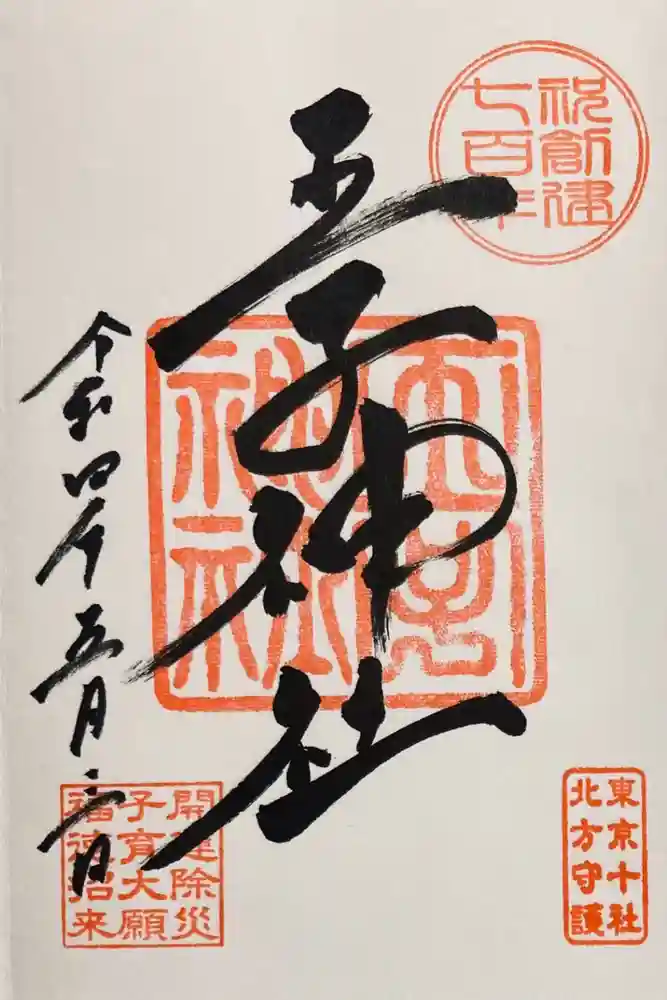 祝創建
七百年
王子神社
令和四年五月二日
開運除災
子育大願
福徳招来
東京十社
北方守護